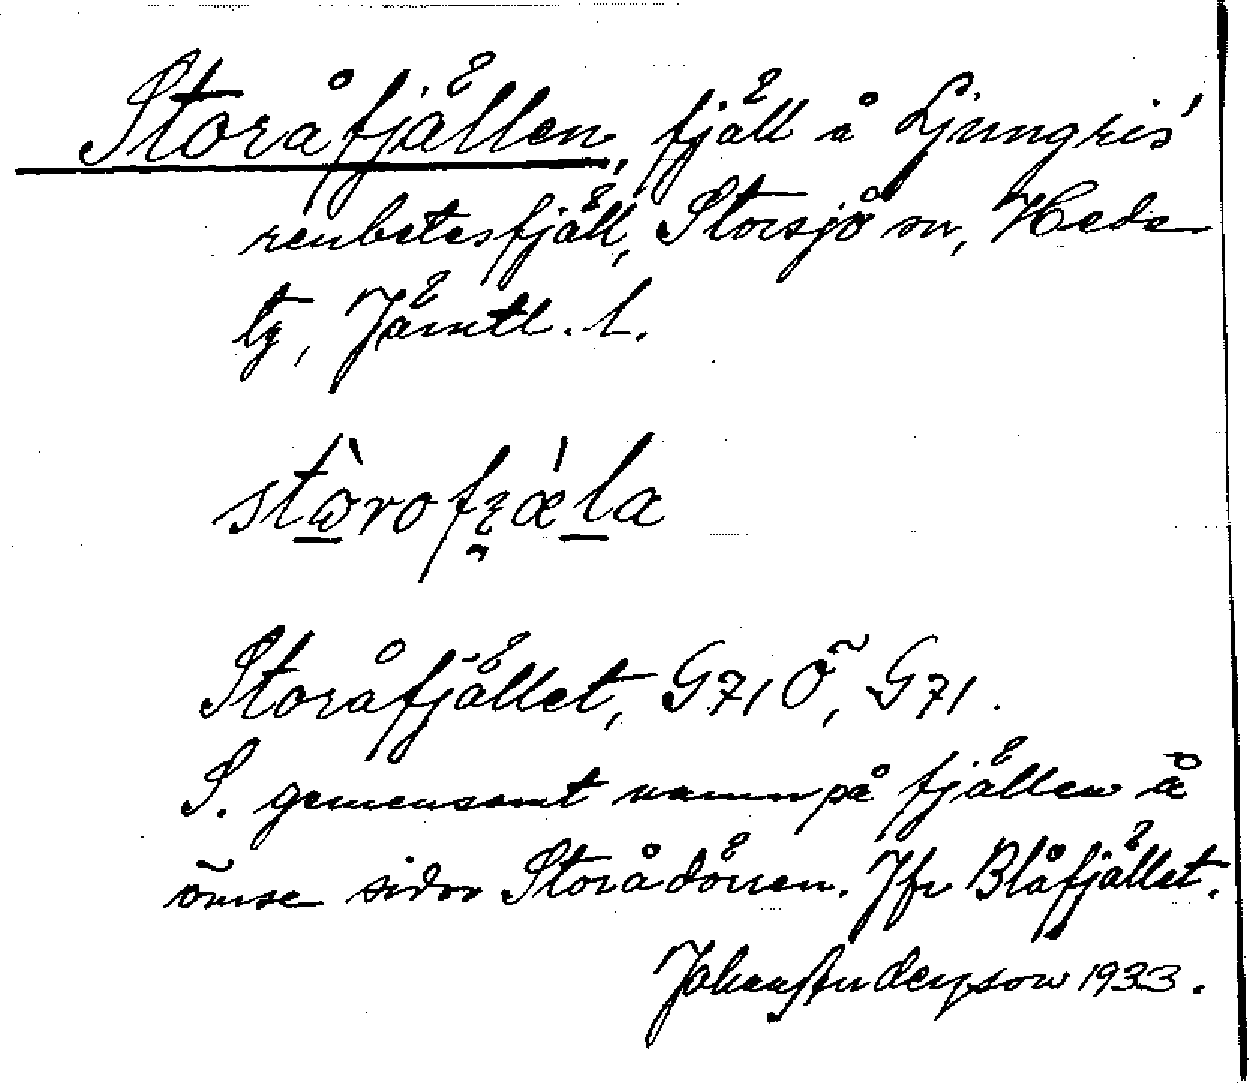 Storåfjällen, fjäll å Ljungris'
renbetesfjäll, Storsjö sn, Heds
tg, Jämtl. l.
Storåfjället, G71Ö, G71.
S. gemensamt namn på fjällen å
ömse sidor Storådörren. Jfr Blåfjället.
Johan Andersson 1933.